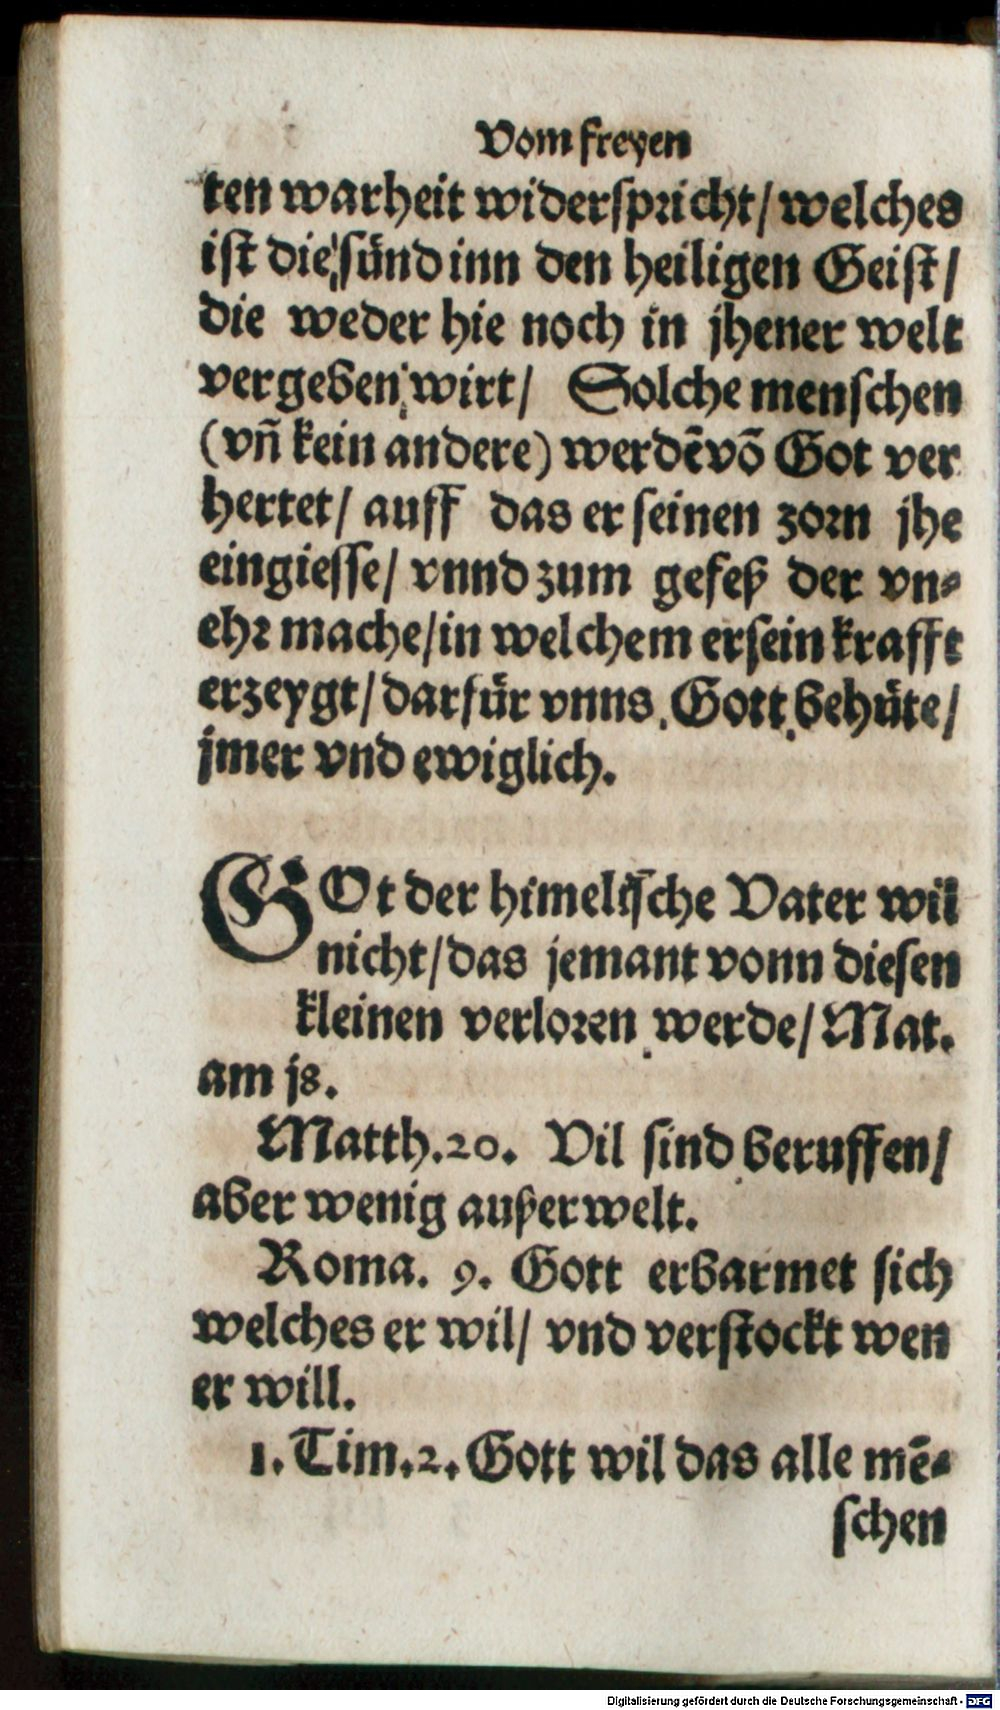 Vom freyen
ten warheit widerspricht/ welches
ist die sünd inn den heiligen Geist/
die weder hie noch in jhener welt
vergeben wirt/ Solche menschen
(vñ kein andere) werdē vō Got ver
hertet/ auff das er seinen zorn jhe
eingiesse/ vnnd zum gefeß der vn-
ehr mache/ in welchem er sein krafft
erzeygt/ darfür vnns Gott behüte/
jmer vnd ewiglich.
GOt der himelische Vater wil
nicht/ das jemant vonn diesen
kleinen verloren werde/ Mat.
am j8.
Matth. 20. Vil sind beruffen/
aber wenig außerwelt.
Roma. 9. Gott erbarmet sich
welches er wil/ vnd verstockt wen
er will.
1. Tim. 2. Gott wil das alle mē-
schen
Digitalisierung gefördert durch die Deutsche Forschungsgemeinschaft - DFG